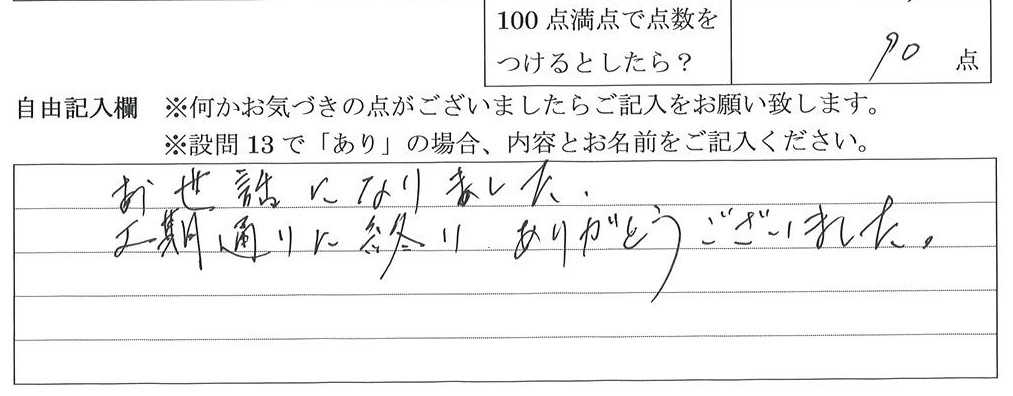 100 点満点で点数を
つけるとしたら？
90 点
自由記入欄 ※何かお気づきの点がございましたらご記入をお願い致します。
※設問 13 で「あり」の場合、内容とお名前をご記入ください。
お世話になりました.
工期通りに終り ありがとうございました。